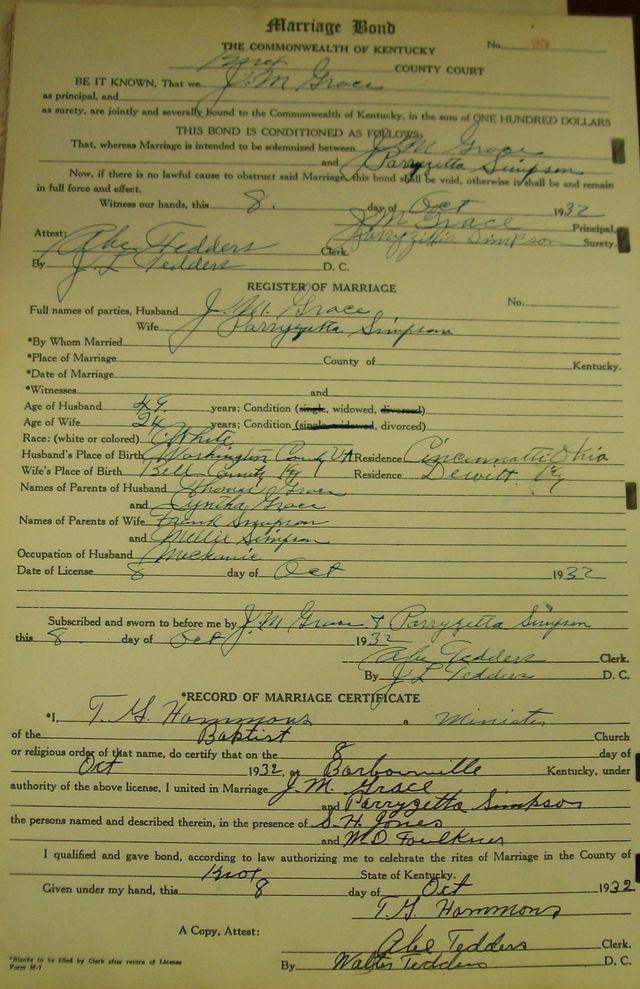 Marriage Bond
THE COMMONWEALTH OF KENTUCKY No.
Knox COUNTY COURT
BE IT KNOWN, That we J. M Grace
as principal, and
as surety, are jointly and severally bound to the Commonwealth of Kentucky, in the sum of ONE HUNDRED DOLLARS
THIS BOND IS CONDITIONED AS FOLLOWS,
That, whereas Marriage is intended to be solemnized between J. M Grace
and Parryzetta Simpson
Now, if there is no lawful cause to obstruct said Marriage, this bond shall be void, otherwise it shall be and remain
in full force and effect.
Witness our hands, this 8. day of Oct 1932
J M Grace Principal,
Attest: Simpson Surety.
Abe Tedders Clerk.
By J L Tedders D. C.
REGISTER OF MARRIAGE
Full names of parties, Husband J. M. Grace No.
Wife Parryzetta Simpson
*By Whom Married
*Place of Marriage County of Kentucky.
*Date of Marriage
*Witnesses and
Age of Husband 49. years; Condition (single, widowed, divorced)
Age of Wife 24 years; Condition (single, widowed, divorced)
Race: (white or colored) White
Husband's Place of Birth Washington County VA Residence Cincinnatti Ohio
Wife's Place of Birth Bell County Ky Residence Dewitt Ky
Names of Parents of Husband Thomas Grace
and Cyntha Grace
Names of Parents of Wife Frank Simpson
and Mellie Simpson
Occupation of Husband Mechanic
Date of License 8 day of Oct 1932
Subscribed and sworn to before me by J. M Grace & Parryzetta Simpson
this 8. day of Oct 1932
Abe Tedders Clerk.
By J L Tedders D. C.
*RECORD OF MARRIAGE CERTIFICATE
*I, T. G. Hammons a Minister
of the Baptist Church
or religious order of that name, do certify that on the 8 day of
Oct 1932, at Barbourville Kentucky, under
authority of the above license, I united in Marriage J. M. Grace
and Parryzetta Simpson
the persons named and described therein, in the presence of S. H. Jones
and M. D. Faulkner
I qualified and gave bond, according to law authorizing me to celebrate the rites of Marriage in the County of
Knox State of Kentucky.
Given under my hand, this 8 day of Oct 1932
T. G. Hammons
A Copy, Attest:
Abe Tedders Clerk.
By Walter Tedders D. C.
*Blanks to be filled by Clerk after return of License
Form M-7